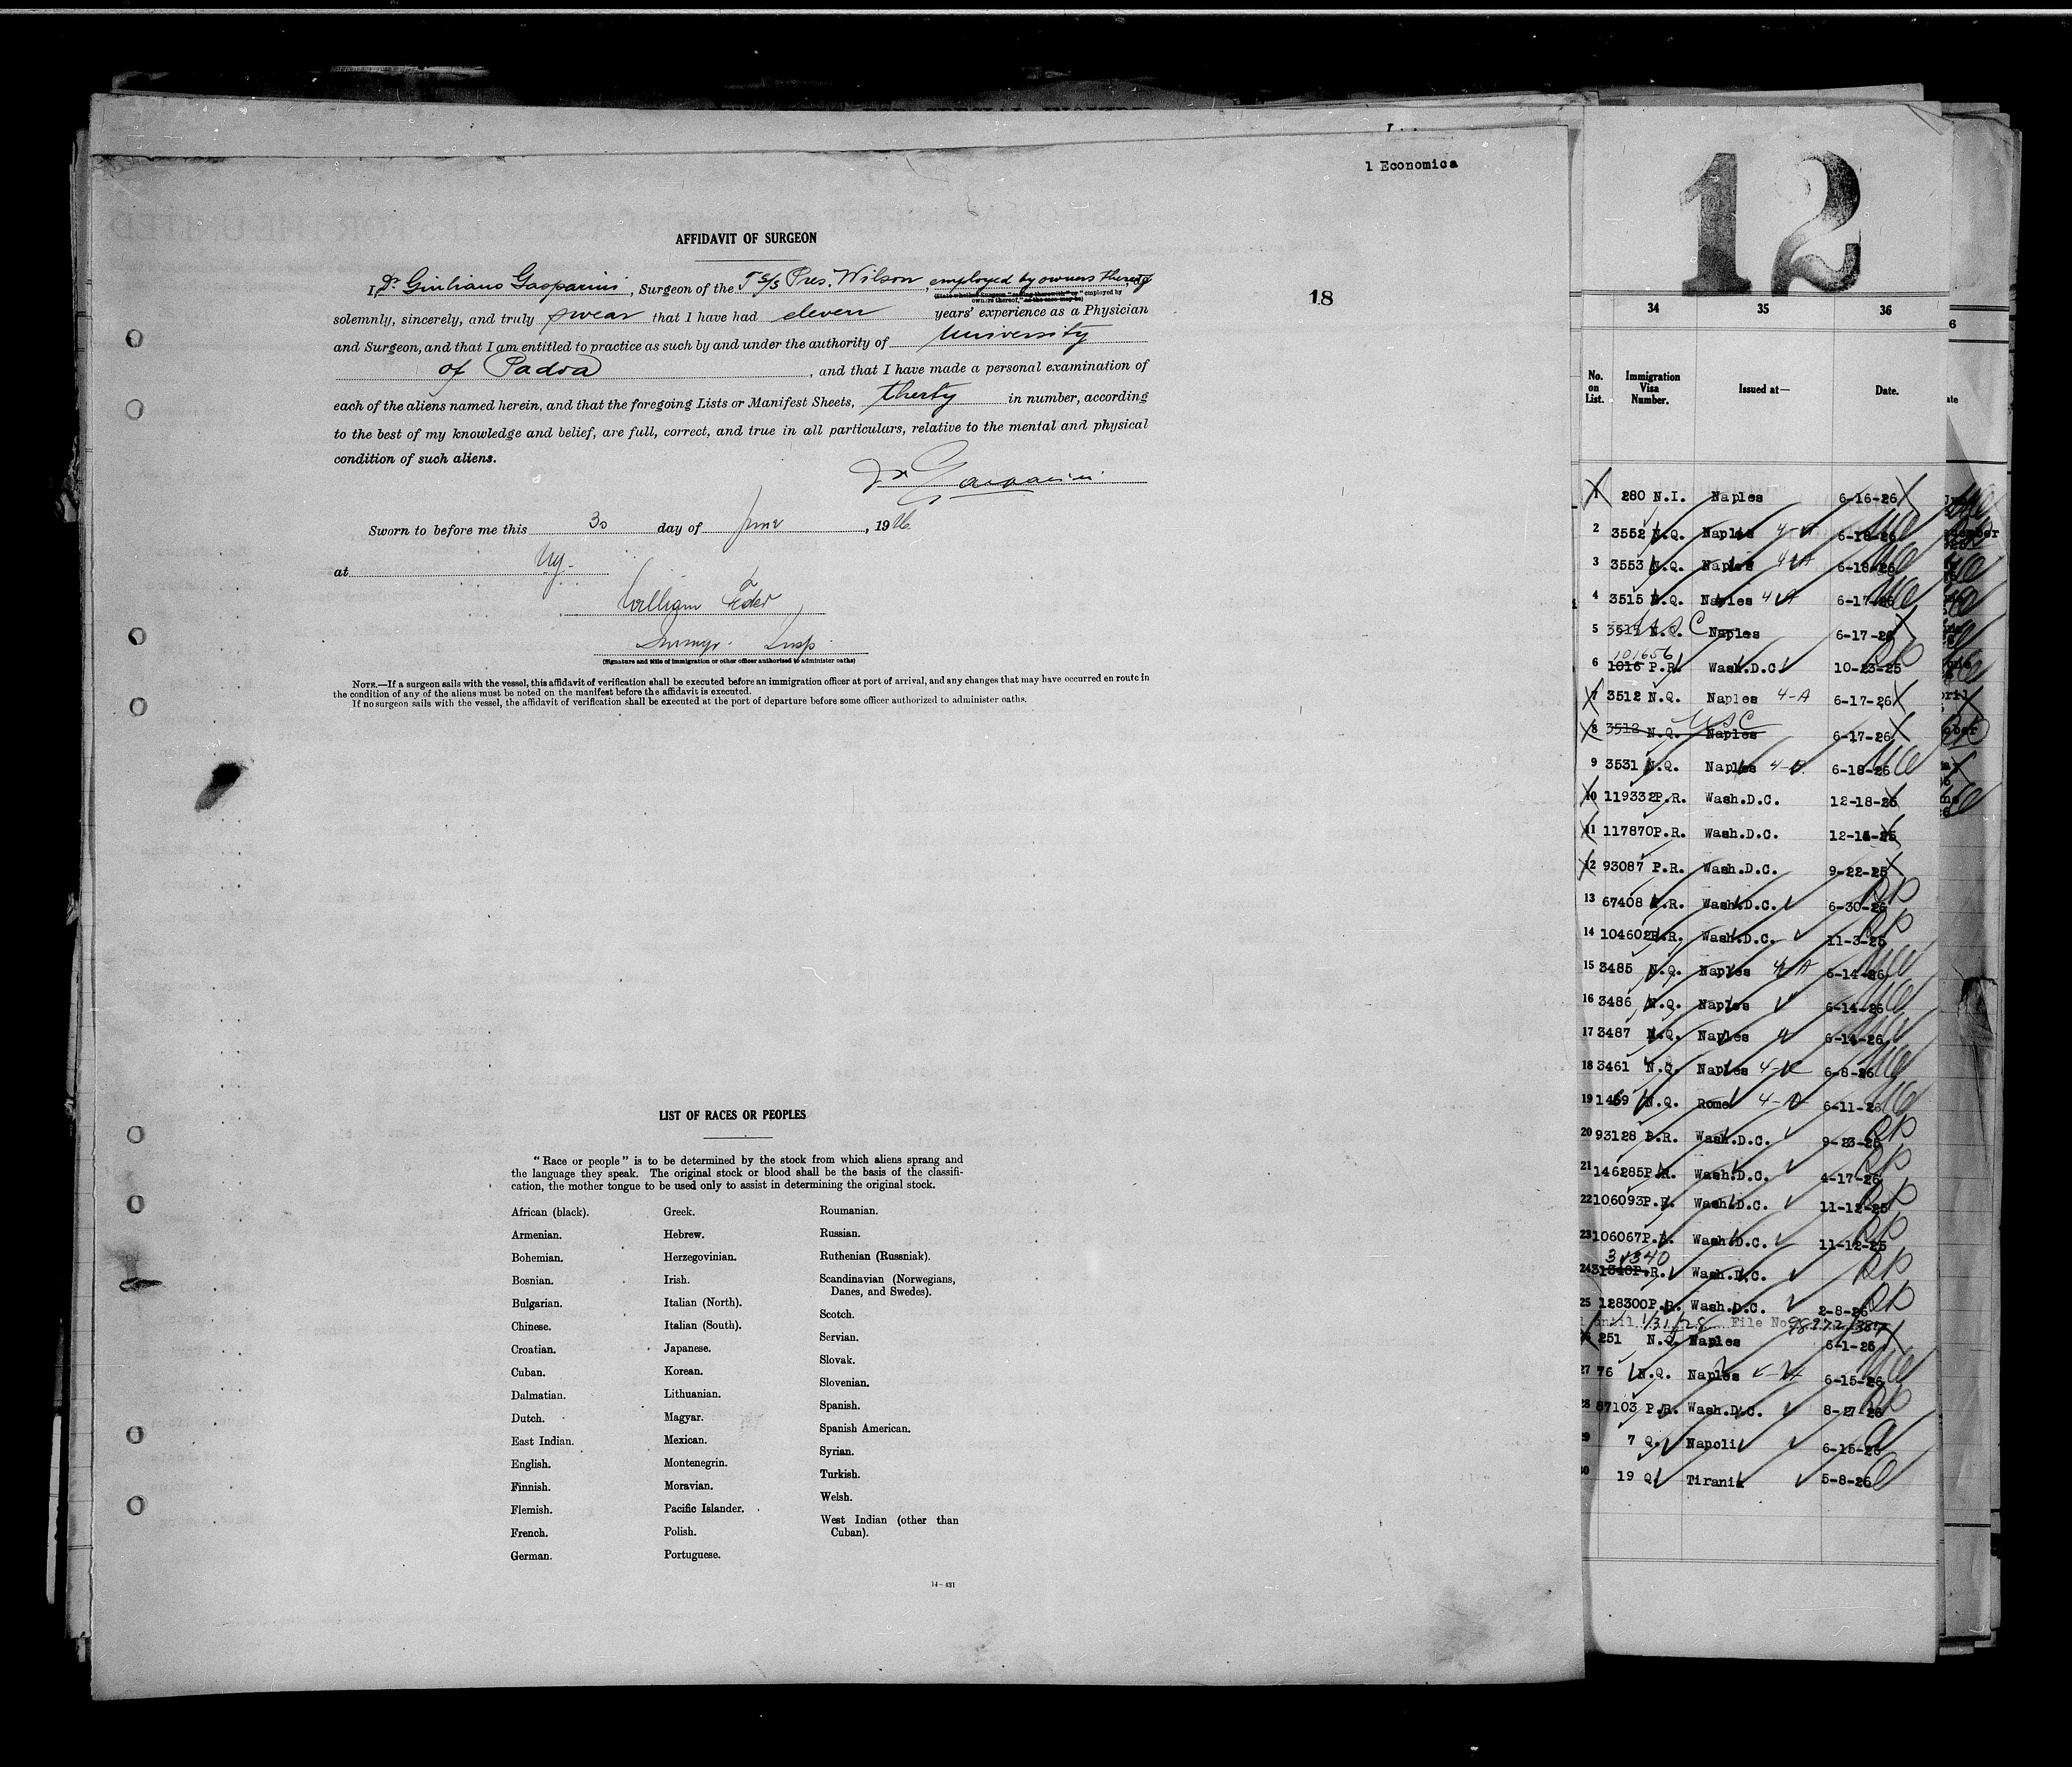 1 Economica
18
AFFIDAVIT OF SURGEON
I, Dr Giuliano Gasparini, Surgeon of the T S/S Pres. Wilson, employed by owners thereof
solemnly, sincerely, and truly swear that I have had eleven years' experience as a Physician
and Surgeon, and that I am entitled to practice as such by and under the authority of University
of Padva, and that I have made a personal examination of
each of the aliens named herein, and that the foregoing Lists or Manifest Sheets, therty in number, according
to the best of my knowledge and belief, are full, correct, and true in all particulars, relative to the mental and physical
condition of such aliens.
Dr Gasparini
Sworn to before me this 30 day of June, 1926
at NY
William
Immgr. Insp.
(Signature and title of immigration or other officer authorized to administer oaths)
NOTE.—If a surgeon sails with the vessel, this affidavit of verification shall be executed before an immigration officer at port of arrival, and any changes that may have occurred en route in
the condition of any of the aliens must be noted on the manifest before the affidavit is executed.
If no surgeon sails with the vessel, the affidavit of verification shall be executed at the port of departure before some officer authorized to administer oaths.
LIST OF RACES OR PEOPLES
"Race or people" is to be determined by the stock from which aliens sprang and
the language they speak. The original stock or blood shall be the basis of the classifi-
cation, the mother tongue to be used only to assist in determining the original stock.
African (black).
Armenian.
Bohemian.
Bosnian.
Bulgarian.
Chinese.
Croatian.
Cuban.
Dalmatian.
Dutch.
East Indian.
English.
Finnish.
Flemish.
French.
German.
Greek.
Hebrew.
Herzegovinian.
Irish.
Italian (North).
Italian (South).
Japanese.
Korean.
Lithuanian.
Magyar.
Mexican.
Montenegrin.
Moravian.
Pacific Islander.
Polish.
Portuguese.
Roumanian.
Russian.
Ruthenian (Russniak).
Scandinavian (Norwegians,
Danes, and Swedes).
Scotch.
Servian.
Slovak.
Slovenian.
Spanish.
Spanish American.
Syrian.
Turkish.
Welsh.
West Indian (other than
Cuban).
14-431
12
34 35 36
No. on List. Immigration Visa Number. Issued at— Date.
1 280 N.I. Naples 6-16-26
2 3552 N.Q. Naples 6-18-26
3 3553 N.Q. Naples 4 A 6-18-26
4 3515 N.Q. Naples 4 A 6-17-26
5 N.Q. Naples 6-17-26
101656
6 1016 P.R. Wash.D.C. 10-23-25
7 3512 N.Q. Naples 4-A 6-17-26
USC
8 3512 N.Q. Naples 6-17-26
9 3531 N.Q. Naples 6-18-26
10 119332P.R. Wash.D.C. 12-18-25
11 117870P.R. Wash.D.C.
12 93087 P.R. Wash.D.C. 9-22-25
13 67408 P.R. Wash.D.C. 6-30-26
14 104602P.R. Wash.D.C. 11-3-25
15 3485 N.Q. Naples 4 A 6-14-26
16 3486 N.Q. Naples 6-14-26
17 3487 N.Q. Naples 6-14-26
18 3461 N.Q. Naples 6-8-26
19 N.Q. Rome 6-11-26
20 93128 P.R. Wash.D.C.
21 146285P.R. Wash.D.C. 4-17-26
22 106093P.R. Wash.D.C. 11-12-25
23 106067P.R. Wash.D.C. 11-12-25
31340
24 P.R. Wash.D.C.
25 128300P.R. Wash.D.C. 2-8-26
until 1/31/28 File No.
251 N.Q. Naples 6-1-26
27 76 N.Q. Naples 6-15-26
28 87103 P.R. Wash.D.C.
7 Q. Napoli 6-15-26
19 Q. Tirani 5-8-26